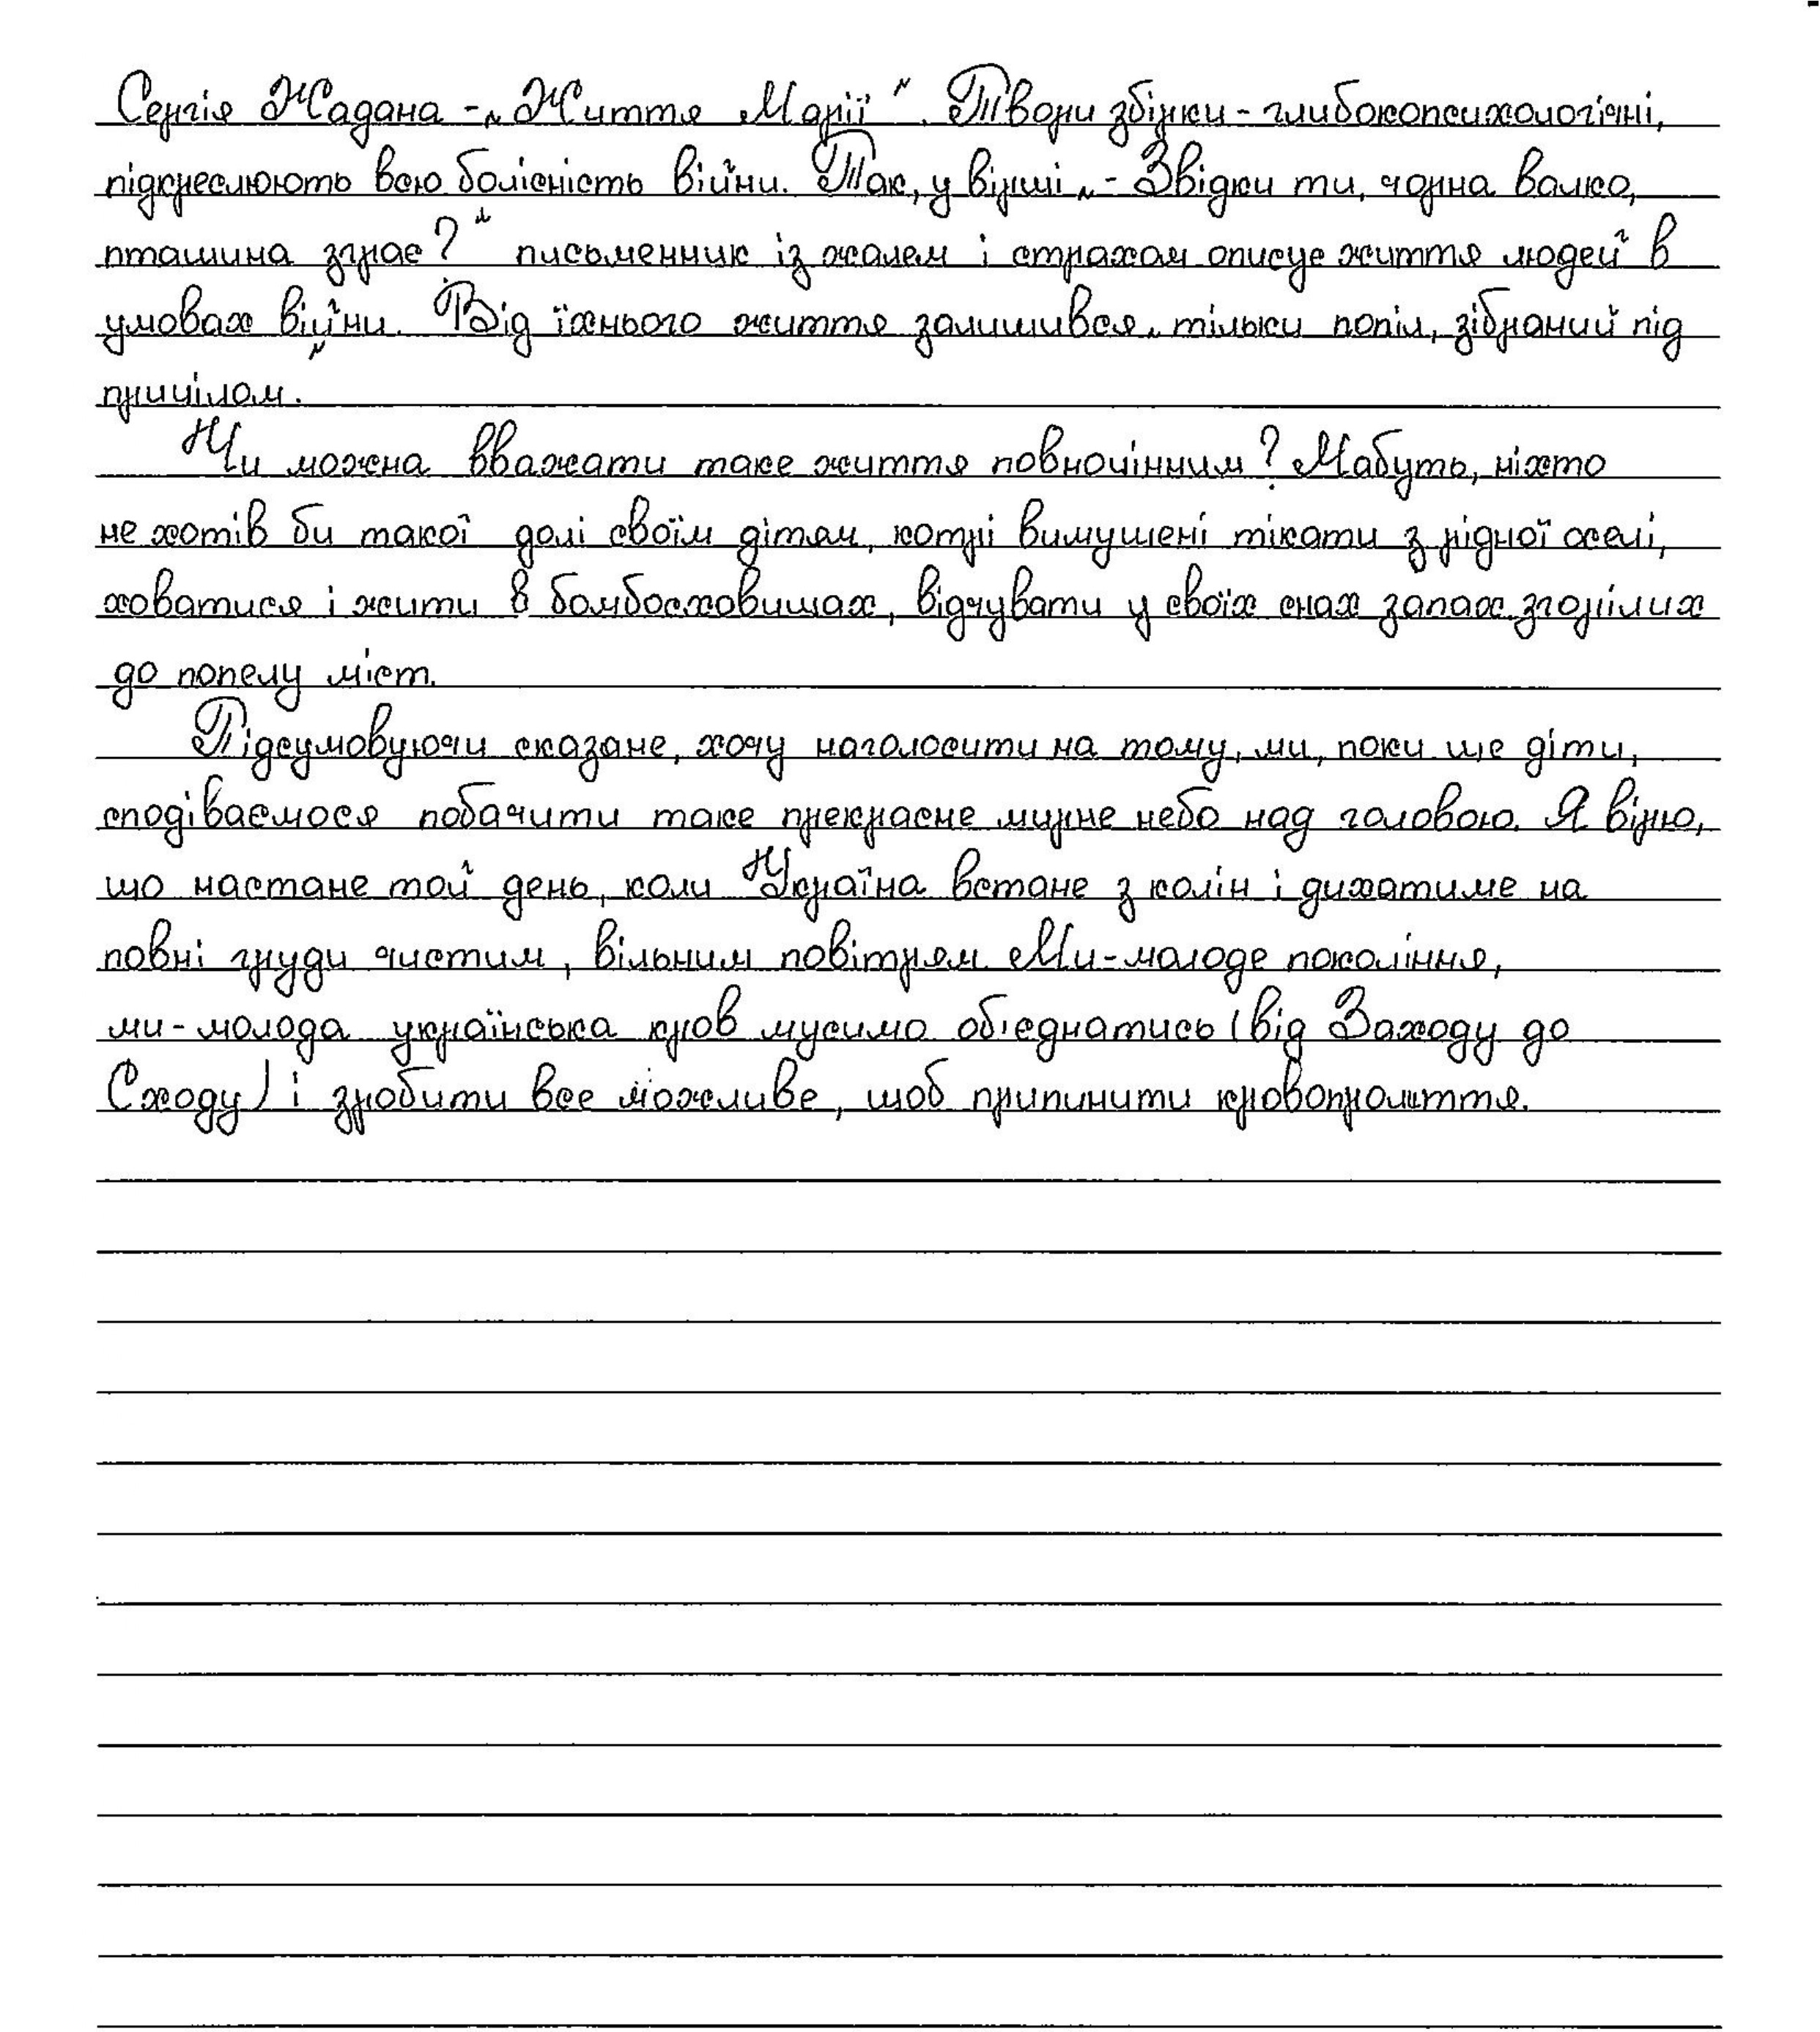 Сергія Жадана - „Життя Марії“. Твори збірки - глибокопсихологічні,
підкреслюють всю болісність війни. Так, у вірші „- Звідки ти, чорна валко,
пташина зграє?“ письменник із жалем і страхом описує життя людей в
умовах війни. Від їхнього життя залишився „тільки попіл, зібраний під
прицілом“.
Чи можна вважати таке життя повноцінним? Мабуть, ніхто
не хотів би такої долі своїм дітям, котрі вимушені тікати з рідної оселі,
ховатися і жити в бомбосховищах, відчувати у своїх снах запах згорілих
до попелу міст.
Підсумовуючи сказане, хочу наголосити на тому, ми, поки ще діти,
сподіваємося побачити таке прекрасне мирне небо над головою. Я вірю,
що настане той день, коли Україна встане з колін і дихатиме на
повні груди чистим, вільним повітрям. Ми - молоде покоління,
ми - молода українська кров мусимо об'єднатись (від Заходу до
Сходу) і зробити все можливе, щоб припинити кровопролиття.